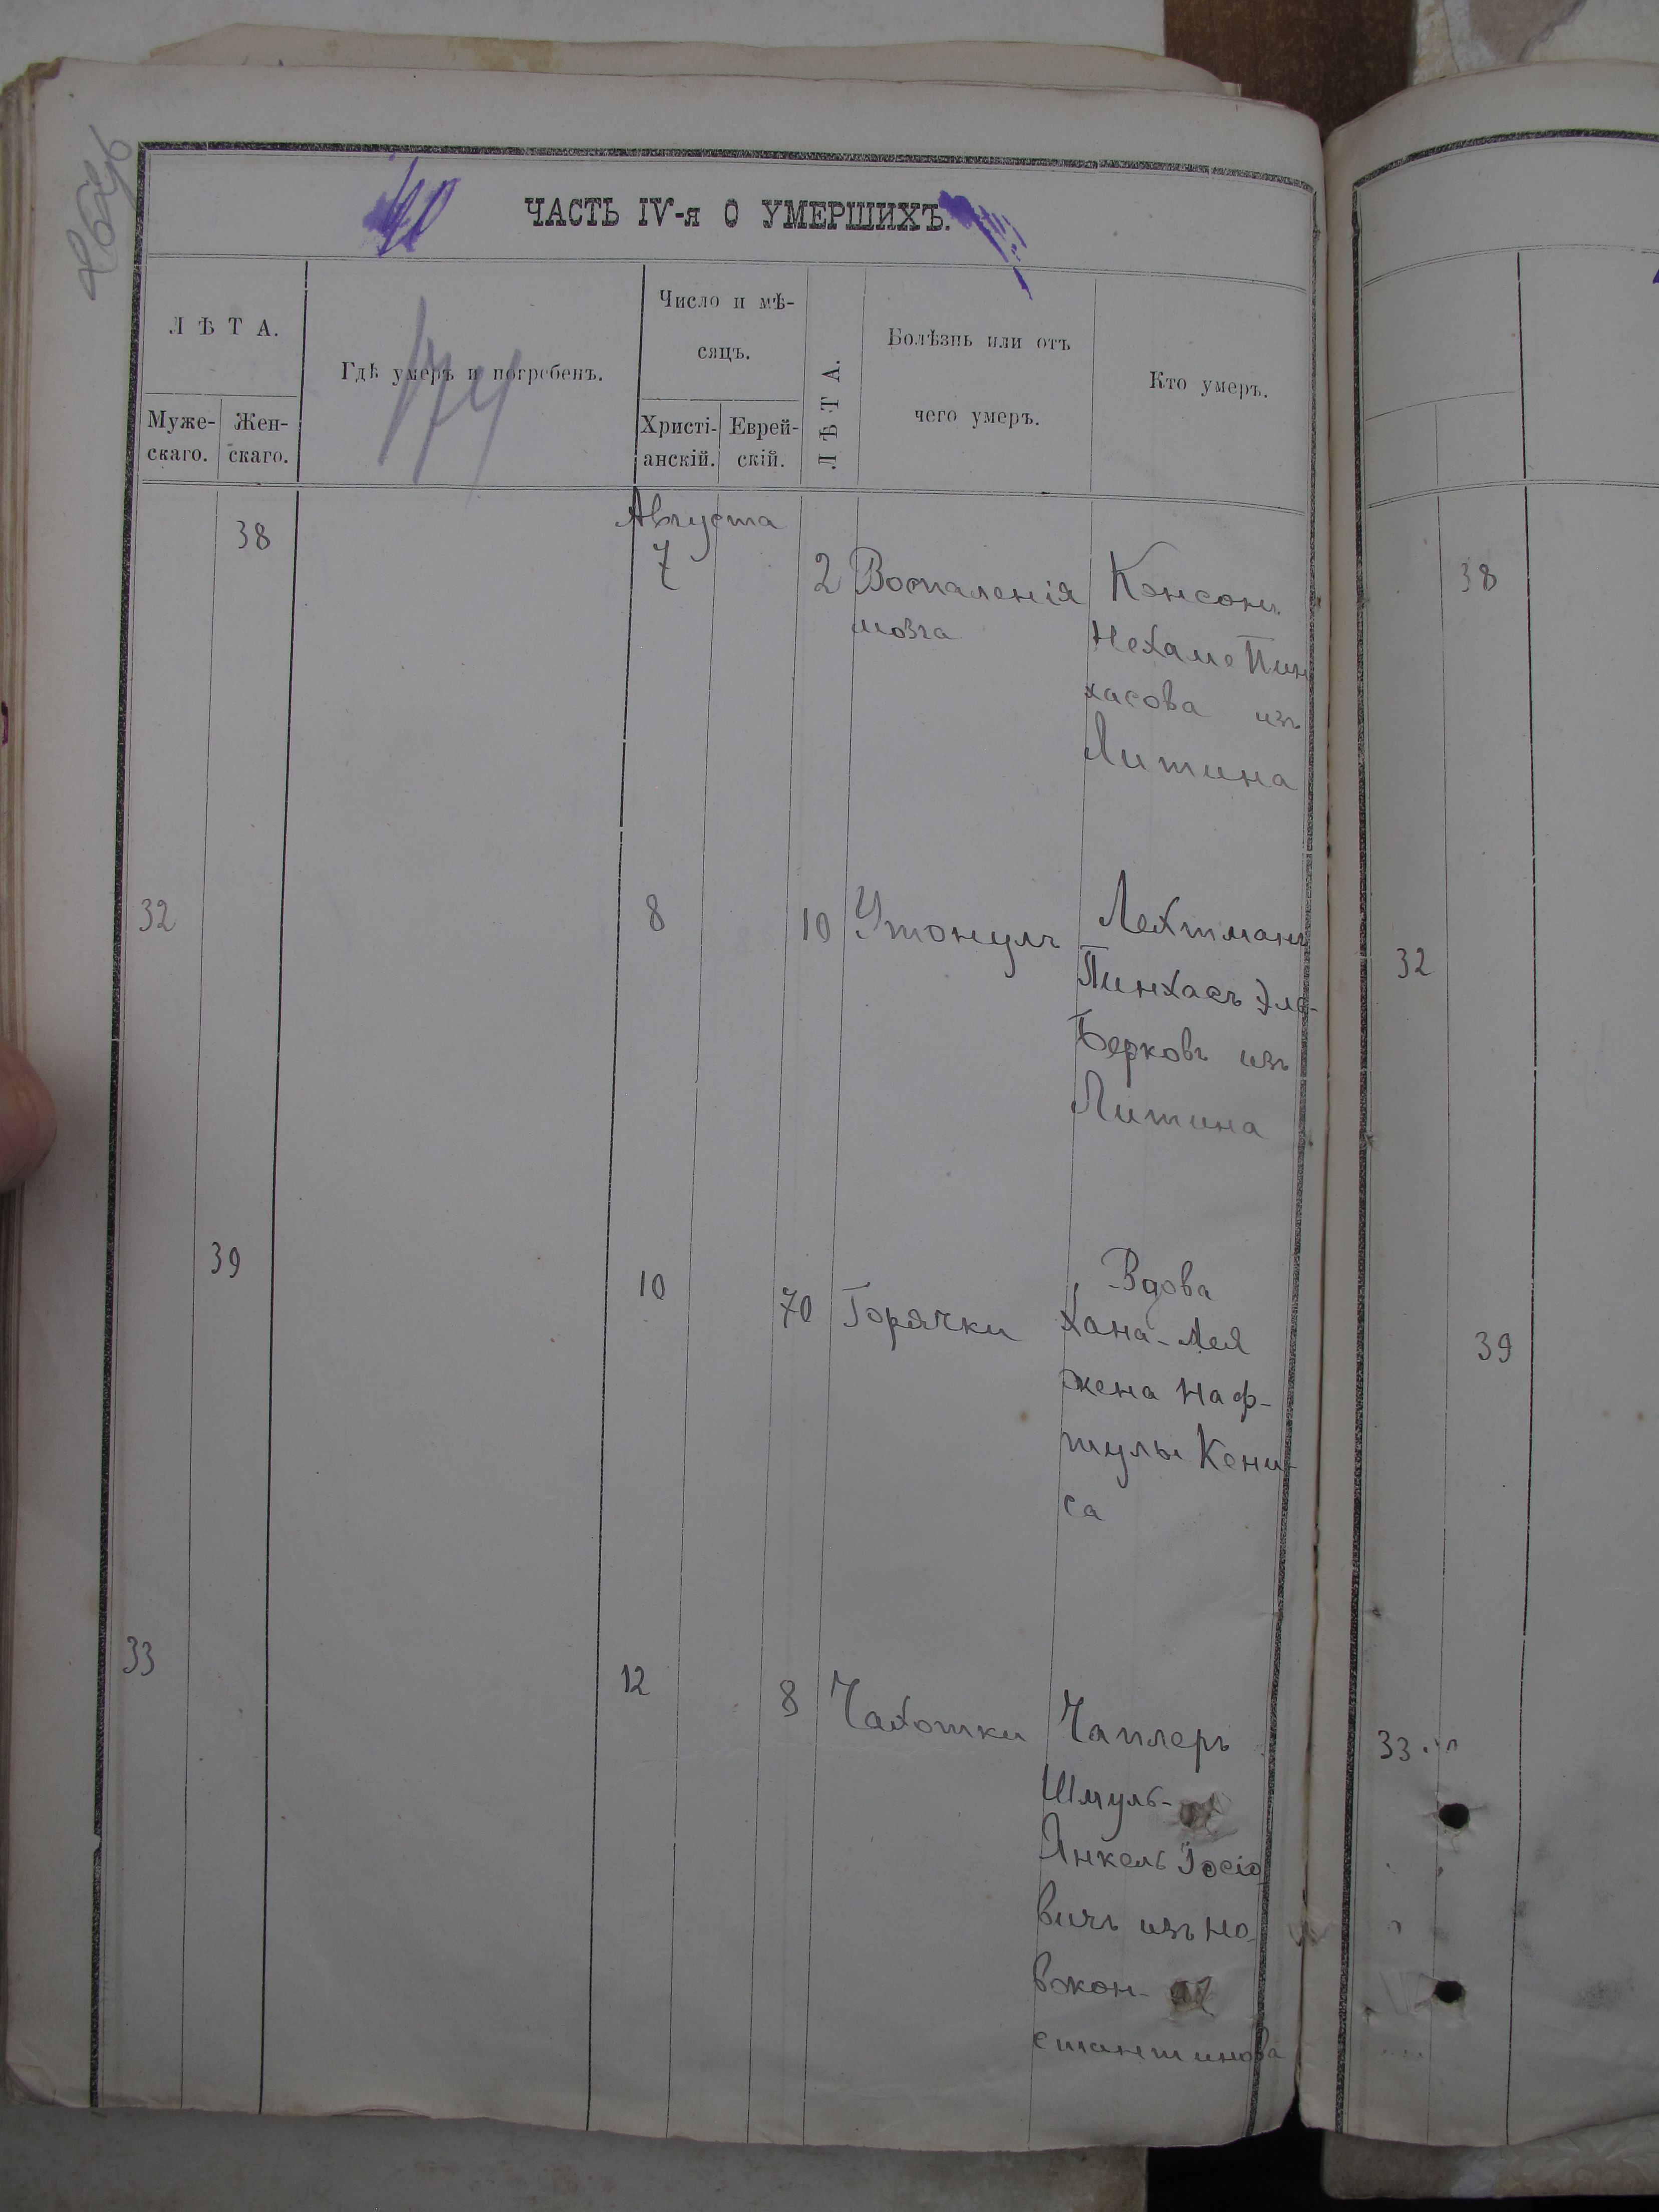 ЧАСТЬ IV-я О УМЕРШИХЪ.
ЛѢТА.
Муже-
скаго.
Жен-
скаго.
Гдѣ умеръ и погребенъ.
Число и мѣ-
сяцъ.
Христі-
анскій.
Еврей-
скій.
ЛѢТА.
Болѣзнь или отъ
чего умеръ.
Кто умеръ.
Августа
38
7
2
Воспаленія
мозга
Нехаме Пин
хасова изъ
Литина
38
32
8
10
Утонулъ
Лехтманъ
Пинхасъ Эль-
Берковъ изъ
Литина
32
39
10
70
Горячки
Вдова
Хана-Лея
жена Наф-
тулы Кени-
са
39
33
12
8
Чахотки
Чаплеръ
Шмуль-
Янкель Іосіо
вичъ изъ Но
вокон-
стантинова
33